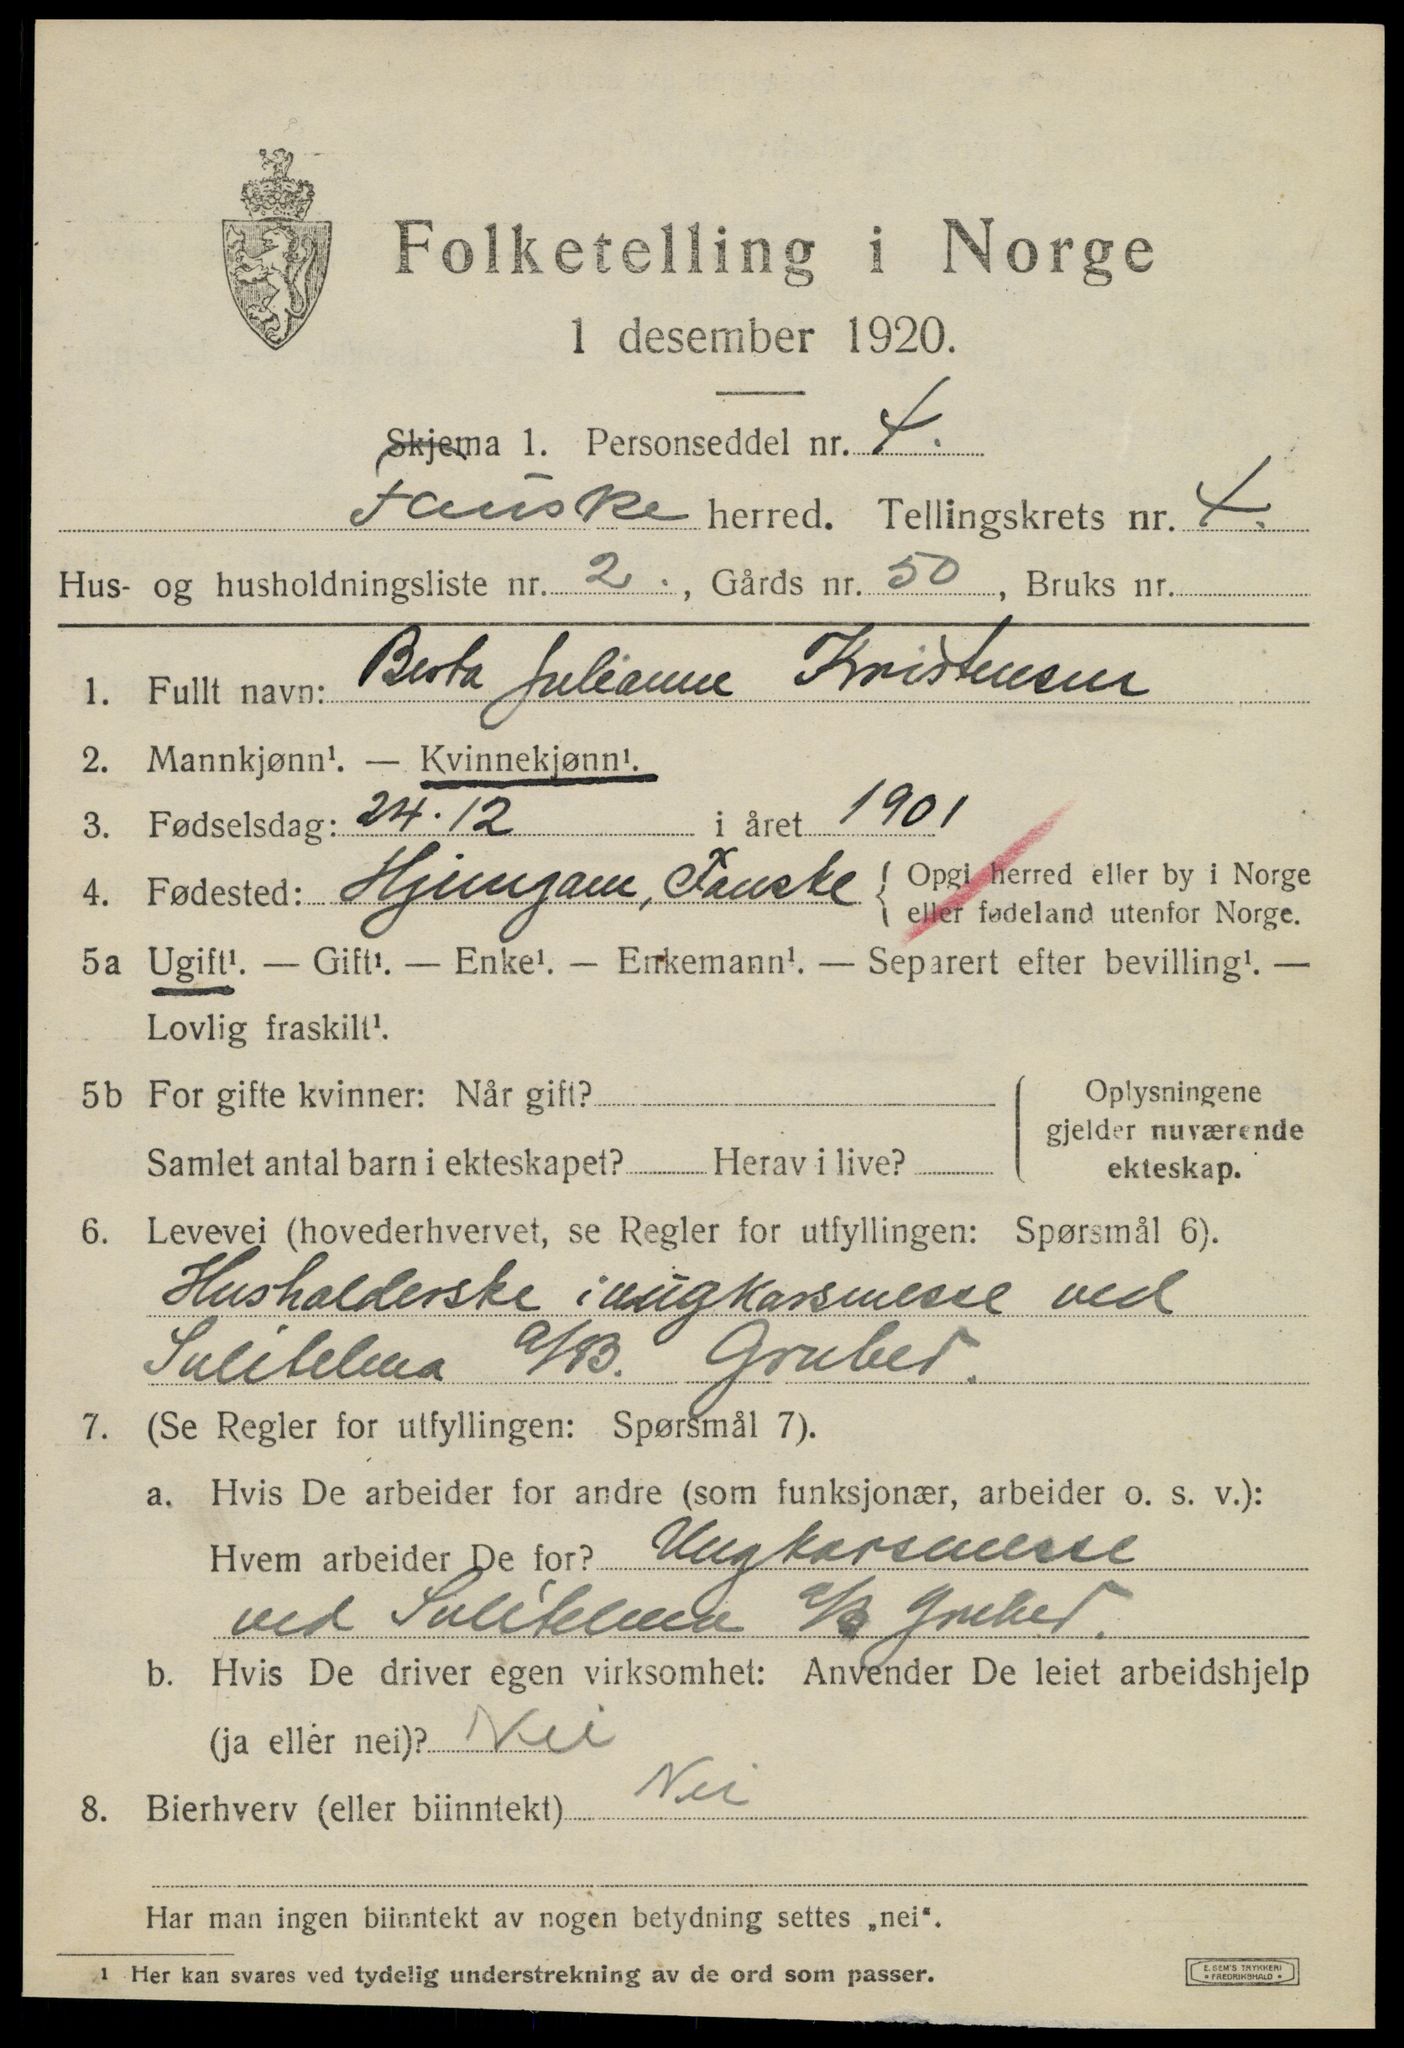 Folketelling i Norge
1 desember 1920.
Skjema 1. Personseddel nr. 4.
Fauske herred. Tellingskrets nr. 4.
Hus- og husholdningsliste nr. 2., Gårds nr. 50, Bruks nr.
1. Fullt navn: Berta Julianne Kristensen
2. Mannkjønn¹. — Kvinnekjønn¹.
3. Fødselsdag: 24.12 i året 1901
4. Fødested: Hjemgam, Fauske { Opgi herred eller by i Norge
eller fødeland utenfor Norge.
5a Ugift¹. — Gift¹. — Enke¹. — Enkemann¹. — Separert efter bevilling¹. —
Lovlig fraskilt¹.
5b For gifte kvinner: Når gift?
Samlet antal barn i ekteskapet? Herav i live?
Oplysningene
gjelder nuværende
ekteskap.
6. Levevei (hovederhvervet, se Regler for utfyllingen: Spørsmål 6).
Husholderske i ungkarsmesse ved
Sulitelma a/B. Grubed.
7. (Se Regler for utfyllingen: Spørsmål 7).
a. Hvis De arbeider for andre (som funksjonær, arbeider o. s. v.):
Hvem arbeider De for? Ungkarsmesse
ved Sulitelma a/B Grubed.
b. Hvis De driver egen virksomhet: Anvender De leiet arbeidshjelp
(ja eller nei)? Nei
8. Bierhverv (eller biinntekt) Nei
Har man ingen biinntekt av nogen betydning settes „nei“.
1 Her kan svares ved tydelig understrekning av de ord som passer.
E. SEM'S TRYKKERI
• FREDRIKSHALD •